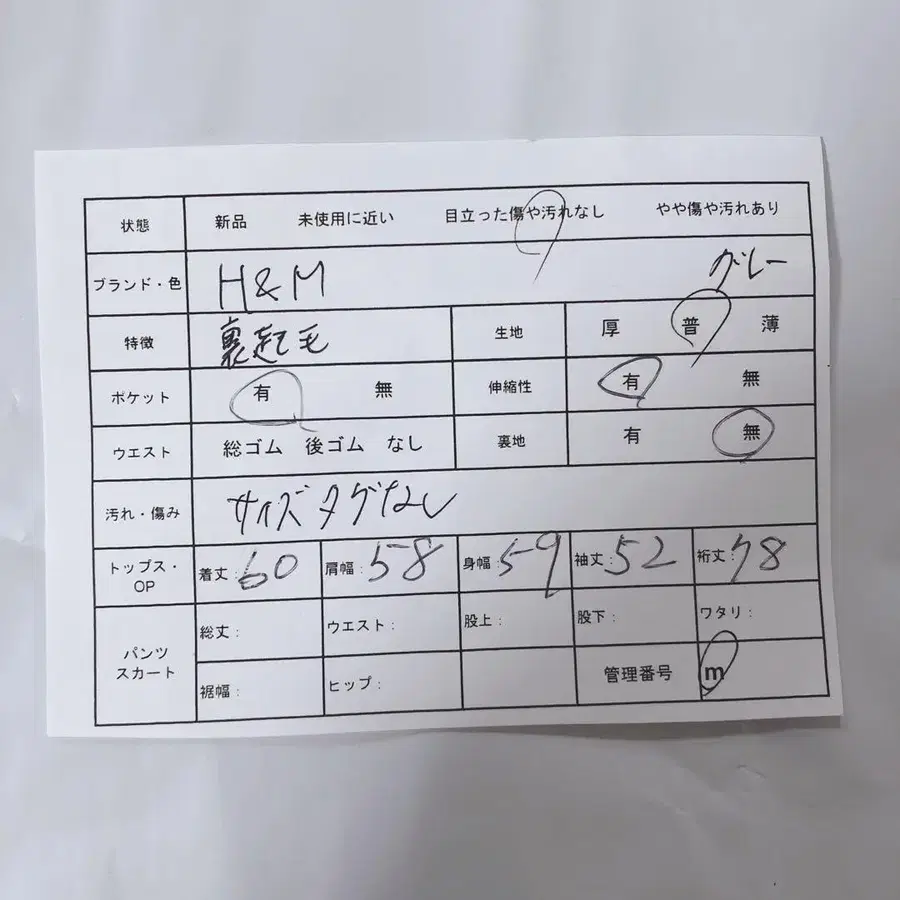 状態 新品 未使用に近い 目立った傷や汚れなし やや傷や汚れあり
ブランド・色 H&M グレー
特徴 裏起毛 生地 厚 普 薄
ポケット 有 無 伸縮性 有 無
ウエスト 総ゴム 後ゴム なし 裏地 有 無
汚れ・傷み サイズタグなし
トップス・OP 着丈:60 肩幅:58 身幅:59 袖丈:52 裄丈:78
パンツ スカート 総丈: ウエスト: 股上: 股下: ワタリ:
裾幅: ヒップ: 管理番号 m